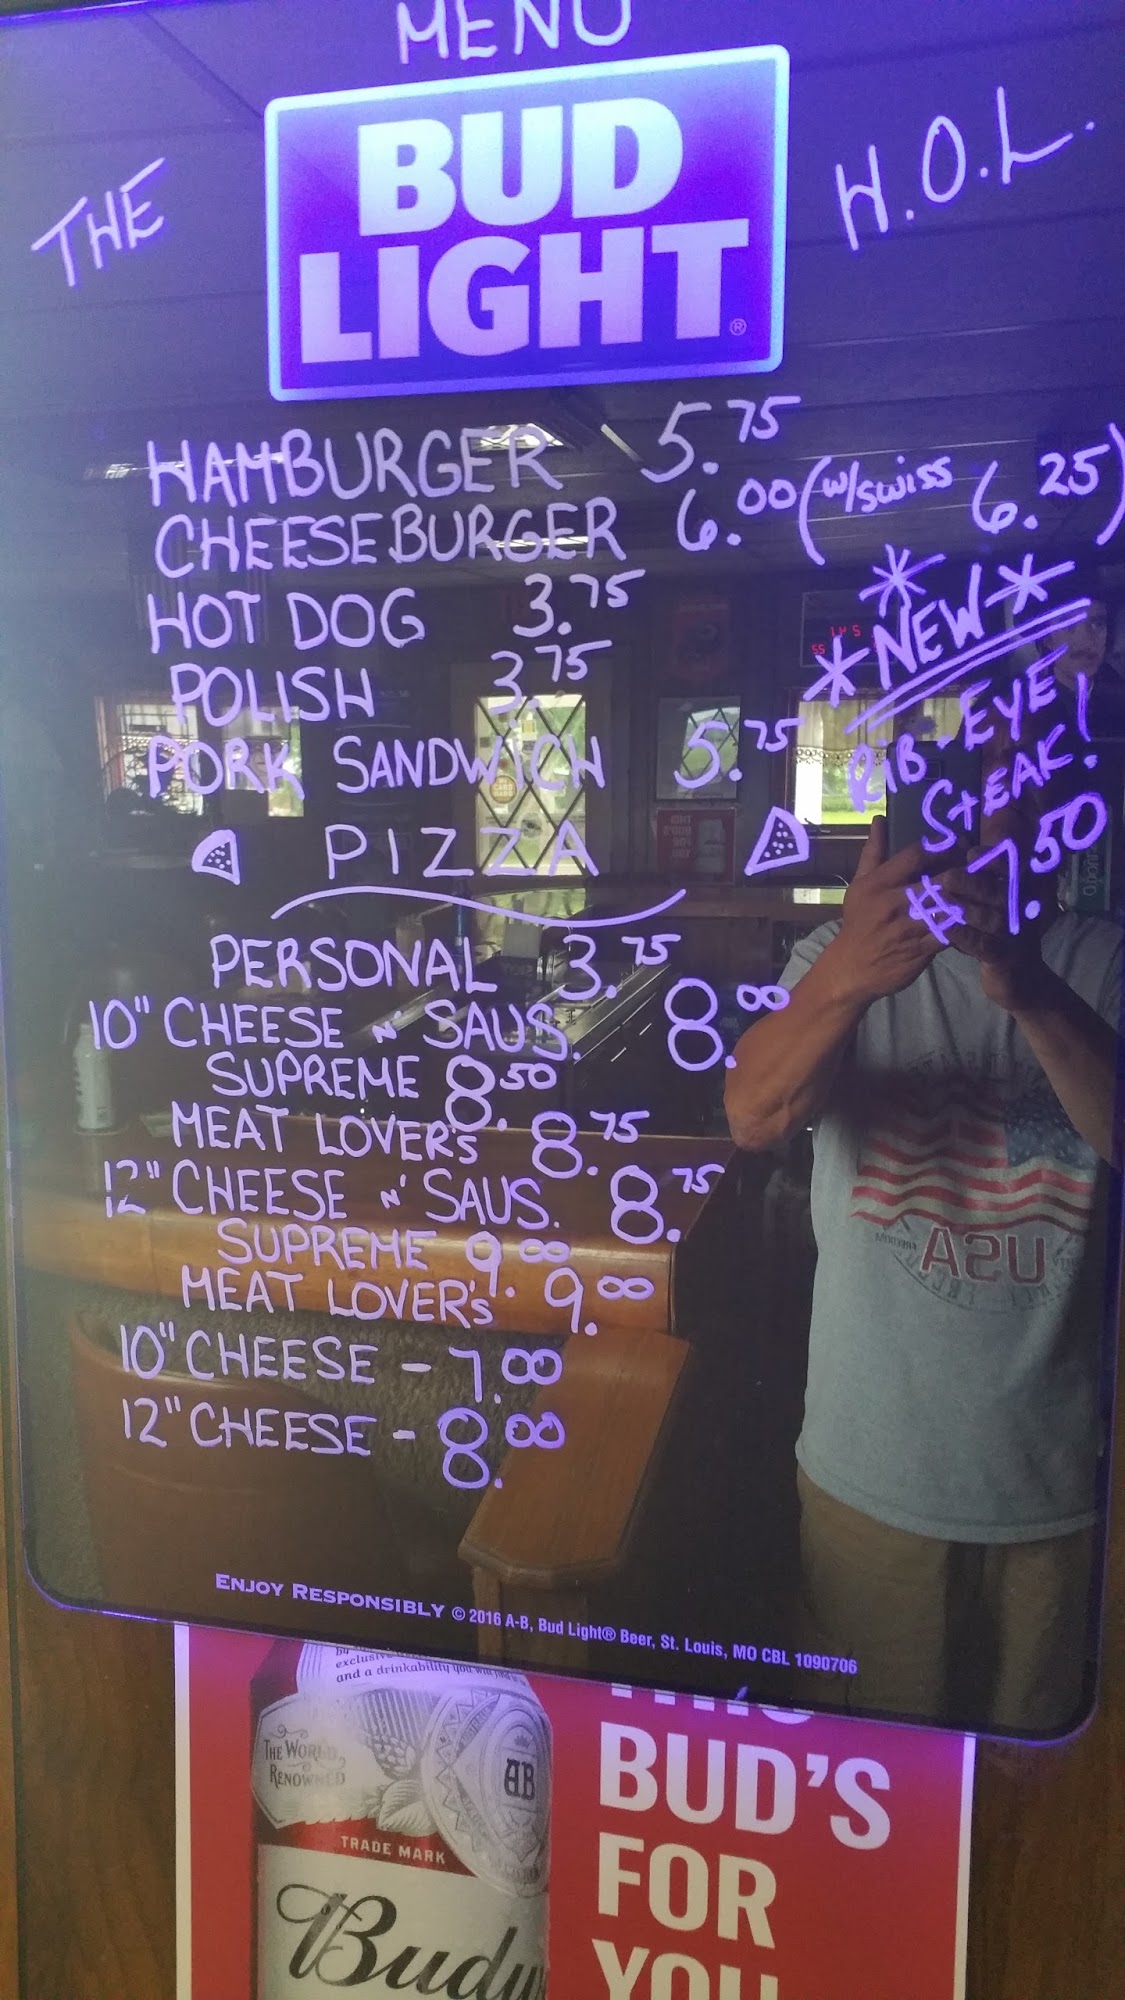 MENU
THE
BUD
LIGHT®
H.O.L.
HAMBURGER 5.75
CHEESEBURGER 6.00 (w/swiss 6.25)
HOT DOG 3.75
POLISH 3.75
PORK SANDWICH 5.75
*NEW*
RIB-EYE
STEAK!
$7.50
PIZZA
PERSONAL 3.75
10" CHEESE N' SAUS. 8.00
SUPREME 8.50
MEAT LOVER's 8.75
12" CHEESE N' SAUS. 8.75
SUPREME 9.00
MEAT LOVER's 9.00
10" CHEESE - 7.00
12" CHEESE - 8.00
ENJOY RESPONSIBLY © 2016 A-B, Bud Light® Beer, St. Louis, MO CBL 1090706
and a drinkability you will find in
THE WORLD
RENOWNED
AB
TRADE MARK
Budw
THIS
BUD'S
FOR
YOU
USA